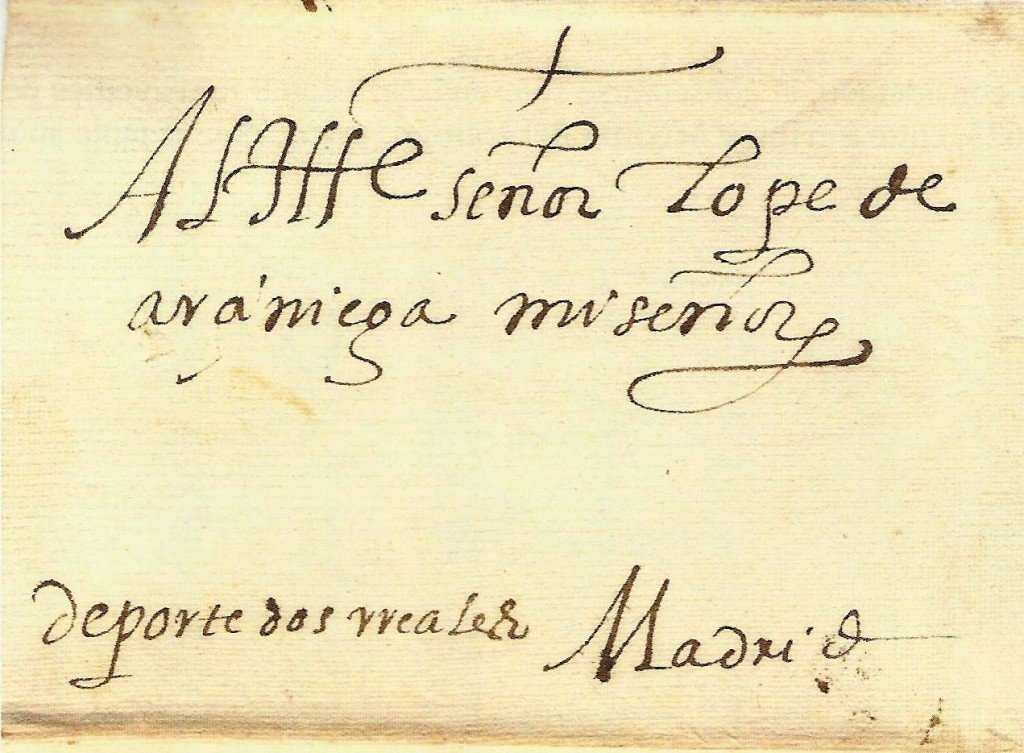 Al Ille señor Lope de
arániega mi señor
deporte dos rreales Madrid